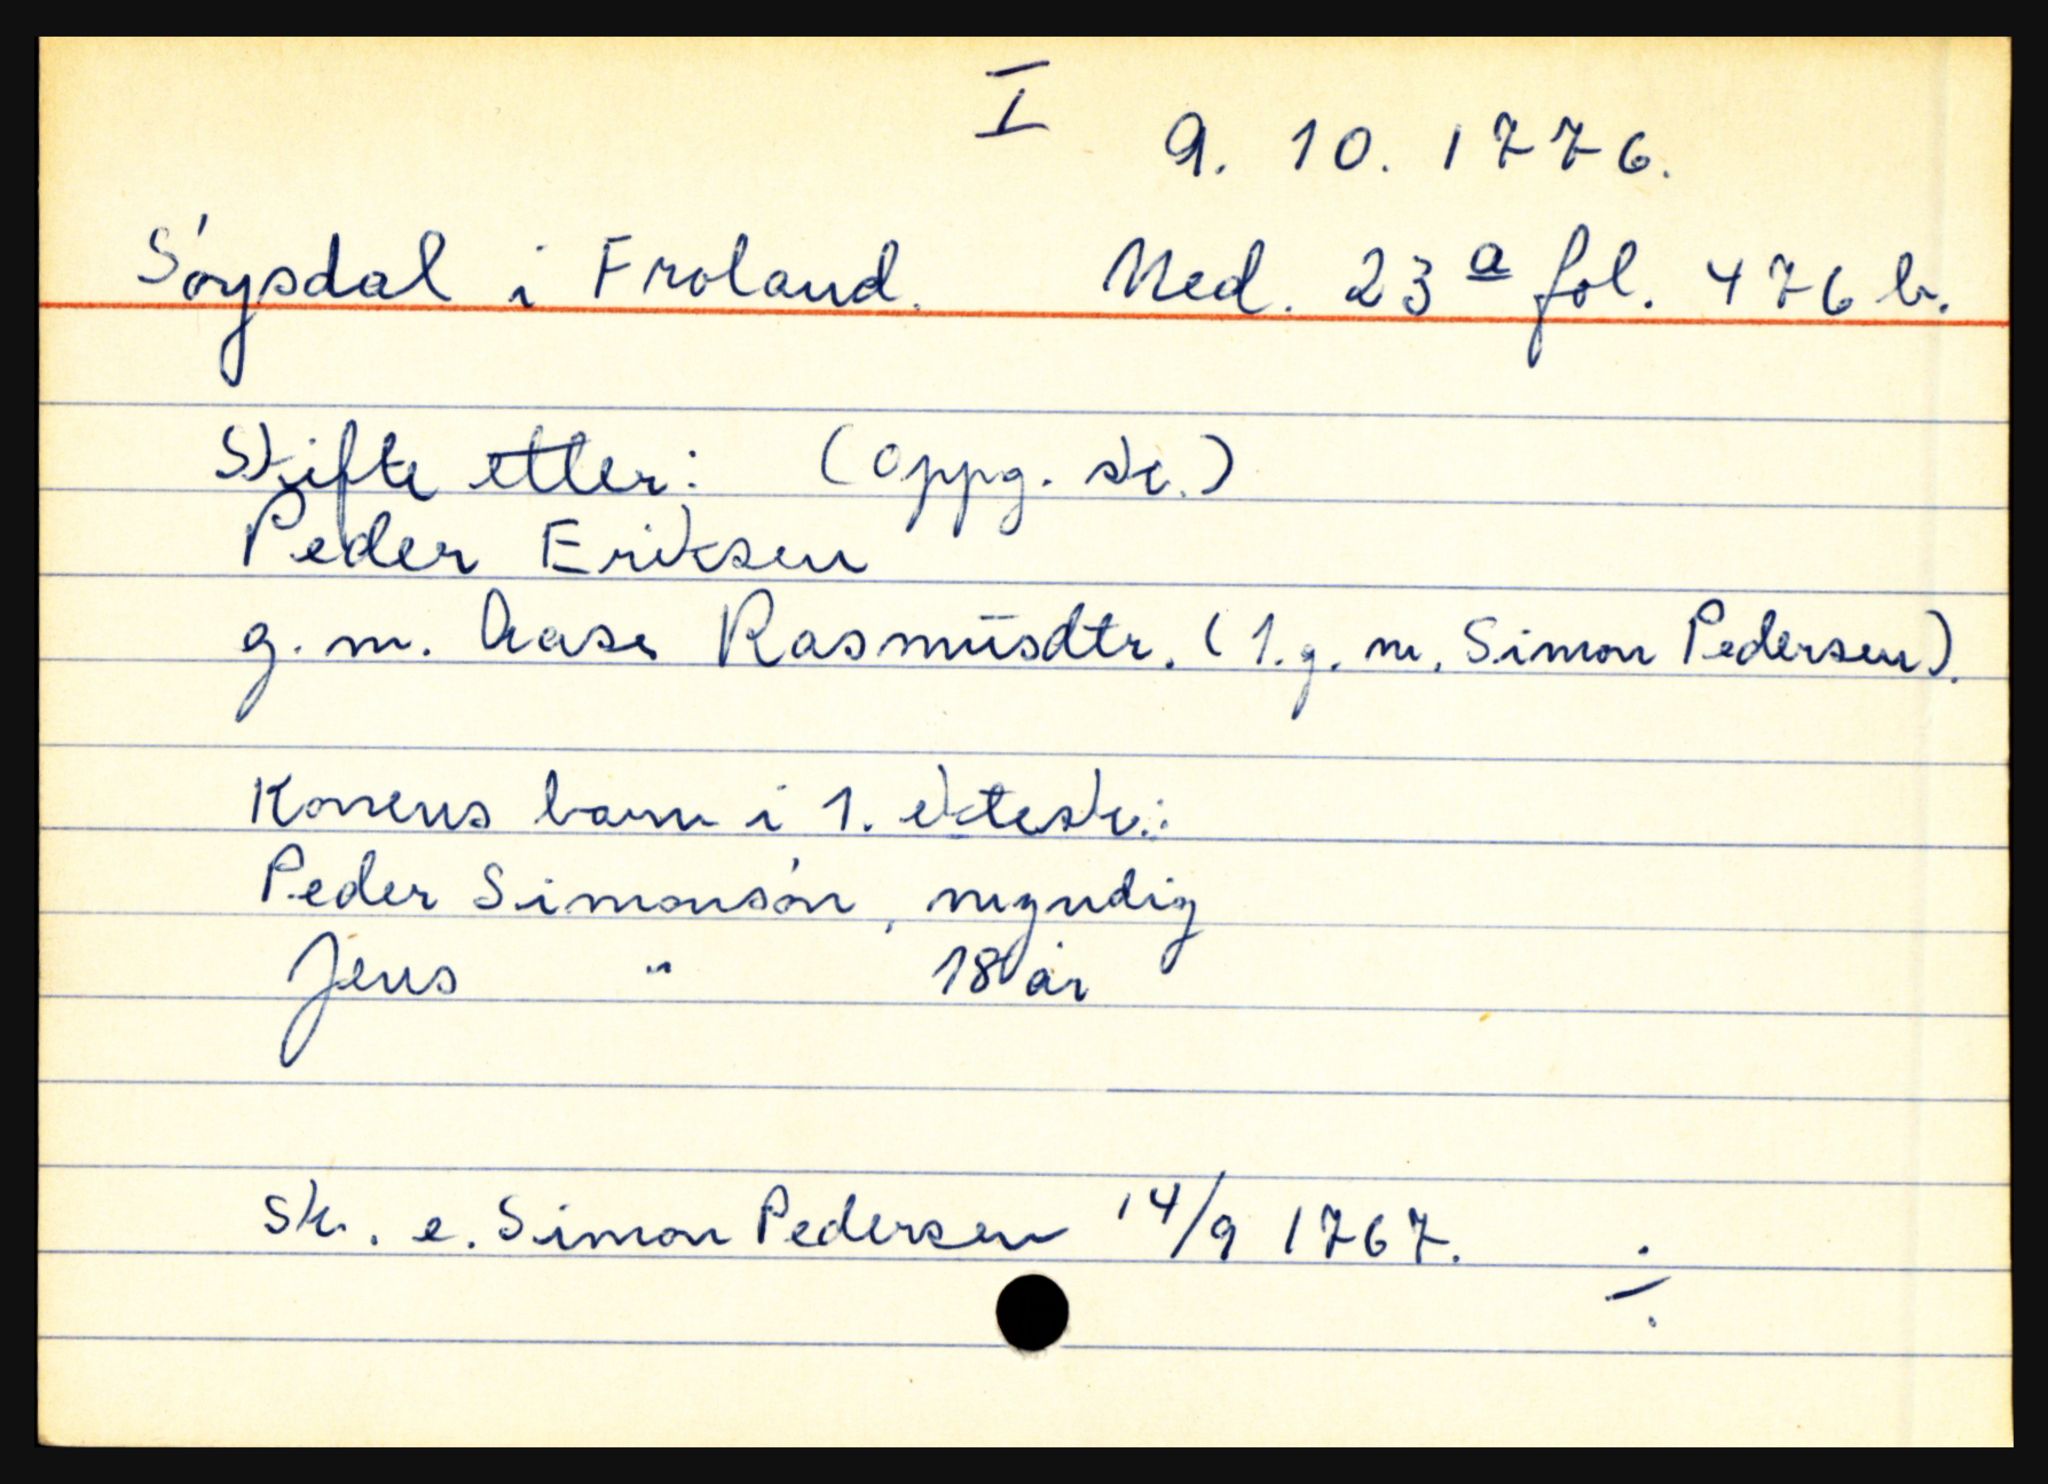 I 9. 10. 1776.
Søysdal i Froland. Ned. 23 a fol. 476 b.
Skifte etter: (Oppg. sk.)
Peder Eriksen
g. m. Aase Rasmusdtr. (1. g. m. Simon Pedersen).
Konens barn i 1. ektesk.:
Peder Simonsøn, myndig
Jens " 18 år
Sk. e. Simon Pedersen 14/9 1767. ./.